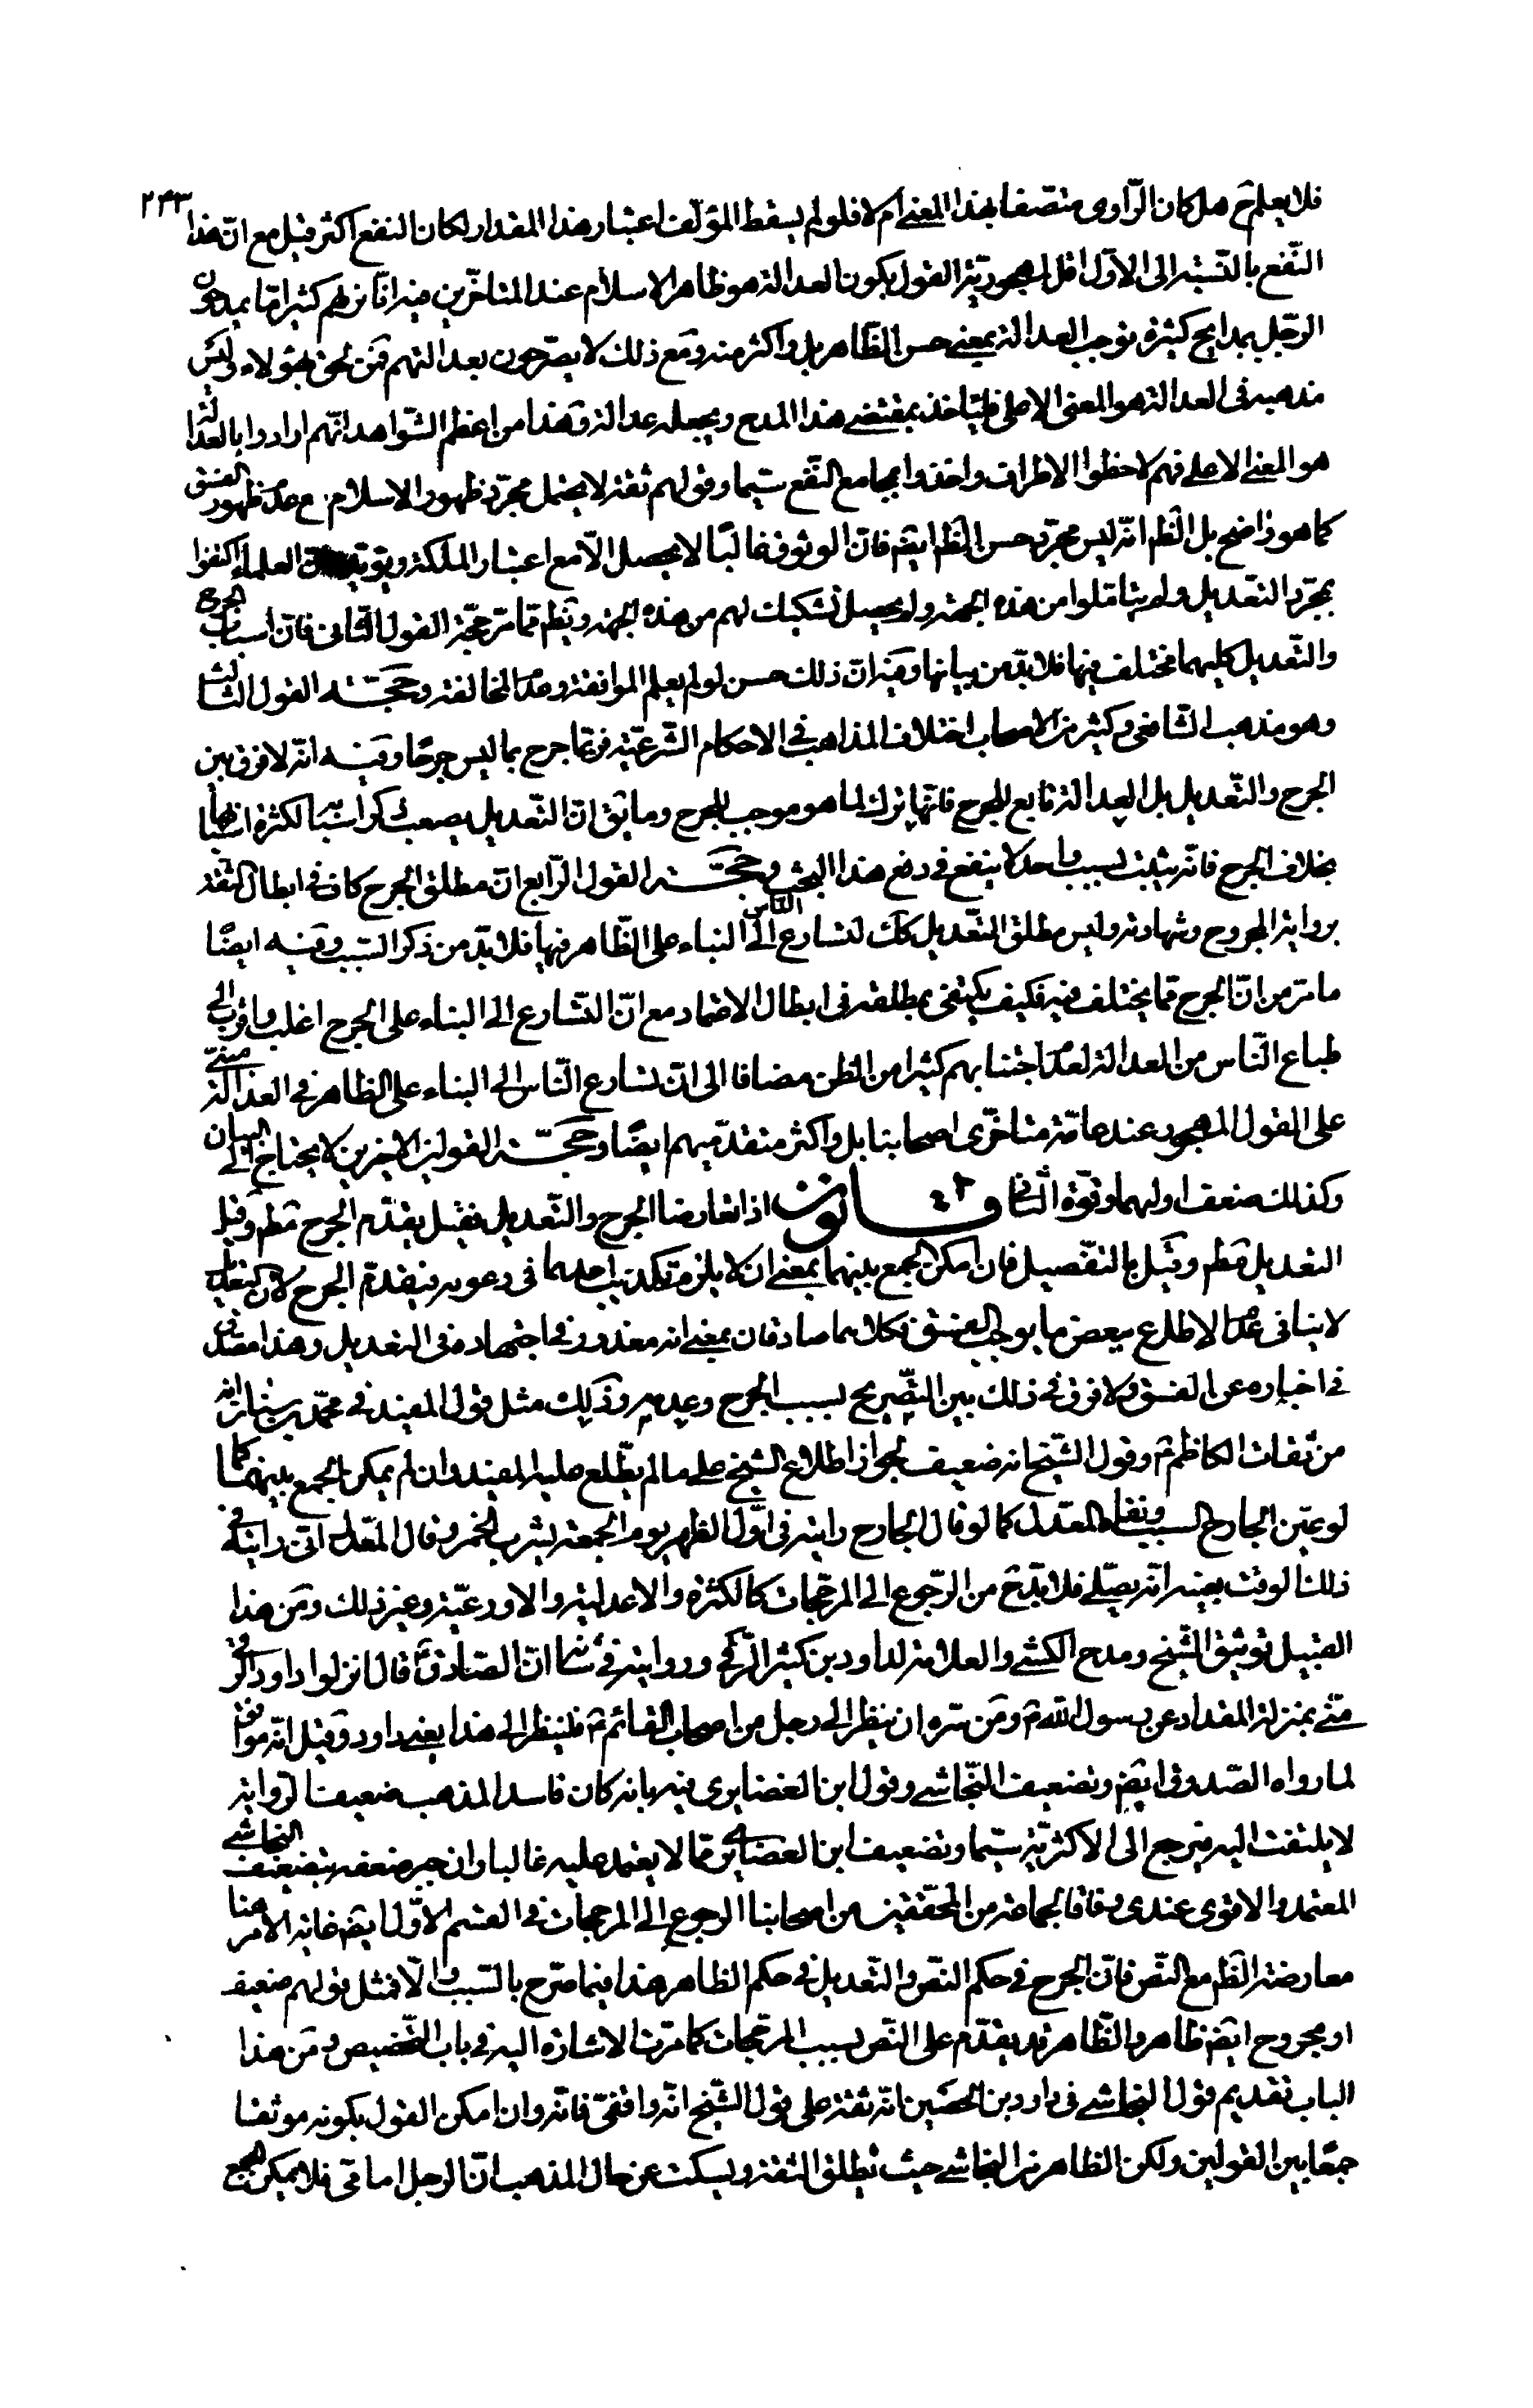 ٢٤٣
فلا يعلم ح هل كان الرّاوى متّصفا بهذا المعنى ام لا فلو لم يسقط المؤلّف اعتبار هذا المقدار لكان النفع اكثر قيل مع انّ هذا
النّفع بالنّسبة الى الاوّل اقل لمهجوريّة القول بكون العدالة هو ظاهر الاسلام عند المتاخّرين فيه انّا نريهم كثيرا ما يمدحون
الرّجل بمدايح كثيرة توجب العدالة بمعنى حسن الظّاهر بل واكثر منه ومع ذلك لا يصرّحون بعدالتهم فمن لحق بهؤلاء وليس
مذهبه فى العدالة هو المعنى الاعلى فلياخذ بمقتضى هذا المدح ويجعله عدالة وهذا من اعظم الشّواهد انّهم ارادوا بالعدالة
هو المعنى الاعلى فهم لاحظوا الاطراف واخذوا بمجامع النّفع سيّما وقولهم ثقة لا يحتمل مجرّد ظهور الاسلام مع عدم ظهور الفسق
كما هو واضح بل الظّم انّه ليس مجرّد حسن الظّم ايضم فانّ الوثوق غالبًا لا يحصل الّا مع اعتبار الملكة ويؤيّده انّ العلماء اكتفوا
بمجرّد التعديل ولم يتاملوا من هذه الجهة ولم يحصل تشكيك لهم من هذه الجهة ويظم ممّا مرّ حجّة القول الثانى فانّ اسباب الجرح
والتّعديل كليهما مختلف فيها فلا بدّ من بيانها وفيه انّ ذلك حسن لو لم يعلم الموافقة وعدم المخالفة وحجّته القول الثالث
وهو مذهب الشّافعى وكثير من الاصحاب اختلاف المذاهب فى الاحكام الشّرعيّة فربّما جرح بما ليس جرحًا وفيه انّه لا فرق بين
الجرح والتّعديل بل العدالة تابع للجرح فانّها ترك لما هو موجب للجرح وما يق انّ التّعديل يصعب ذكر اسبابها لكثرة اسبابها
بخلاف الجرح فانّه يثبت بسبب واحد لا ينفع فى دفع هذا البحث وحجّة القول الرّابع انّ مطلق الجرح كاف فى ابطال الثقة
برواية المجروح وشهادته وليس مطلق التّعديل كك لتسارع النّاس الى البناء على الظّاهر فيها فلا بدّ من ذكر السّبب وفيه ايضًا
ما مرّ من انّ الجرح ممّا يختلف فيه فكيف يكتفى بمطلقه فى ابطال الاعتماد مع انّ التّسارع الى البناء على الجرح اغلب واقرب الى
طباع النّاس من العدالة لعدم اجتنابهم كثيرا من الظن مضافا الى انّ تسارع النّاس الى البناء على الظاهر فى العدالة مبنىّ
على القول المهجور عند عامّة متاخّرى اصحابنا بل واكثر متقدّميهم ايضًا وحجّة القولين الاخيرين لا يحتاج الى البيان
وكذلك ضعف اولهما وقوّة الثّانى قانون اذا تعارضا الجرح والتّعديل فقيل يقدّم الجرح مطم وقيل
التعديل مطم وقيل بالتفصيل فان امكن الجمع بينهما بمعنى ان لا يلزم تكذيب احدهما فى دعويه فيقدم الجرح لانّ التعديل
لا ينافى عدم الاطلاع ببعض ما يوجب الفسق فكلاهما صادقان بمعنى انه معذور فى اجتهاده فى التعديل وهذا مصدّق
فى اخباره عن الفسق ولا فرق فى ذلك بين التّصريح بسبب الجرح وعدمه وذلك مثل قول المفيد فى محمّد بن سنان انه
من ثقات الكاظم ع وقول الشّيخ انه ضعيف لجواز اطلاع الشيخ على ما لم يطّلع عليه المفيد وان لم يمكن الجمع بينهما كما
لو عيّن الجارح السبب ونفاه المعدّل كما لو قال الجارح رايته فى اوّل الظهر يوم الجمعة يشرب الخمر وقال المعدّل انّى رايته فى
ذلك الوقت بعينه انّه يصلّى فلا بدّ ح من الرّجوع الى المرجّحات كالكثرة والاعدليّة والاورعيّة وغير ذلك ومن هذا
القبيل توثيق الشّيخ ومدح الكشّى والعلامة لداود بن كثير الرّقى وروايته فى شانه انّ الصّادق ع قال انزلوا داود الرّقى
منّى بمنزلة المقداد عن رسول الله ص ومن سرّه ان ينظر الى رجل من اصحاب القائم ع فلينظر الى هذا يعنى داود وقيل انّه موافق
لما رواه الصّدوق ايضم وتضعيف النّجاشى وقول ابن الغضايرى فيه بانه كان فاسد المذهب ضعيف الرّواية
لا يلتفت اليه فيرجع الى الاكثريّة سيّما وتضعيف ابن الغضايرى ممّا لا يعتمد عليه غالبا وان جبر ضعفه بتضعيف النجاشى
المعتمد والاقوى عندى وفاقا لجماعة من المحقّقين من اصحابنا الرجوع الى المرجحات فى القسم الاوّل ايضم غاية الامر هنا
معارضة الظّم مع النّص فانّ الجرح فى حكم النص والتّعديل فى حكم الظاهر هذا فيما صرّح بالسّبب والّا فمثل قولهم ضعيف
او مجروح ايضم ظاهر والظّاهر قد يقدّم على النّص بسبب المرجّحات كما مرّت الاشارة اليه فى باب التّخصيص ومن هذا
الباب تقديم قول النجاشى فى داود بن الحصين انّه ثقة على قول الشّيخ انّه واقفىّ فانّه وان امكن القول بكونه موثقا
جمعًا بين القولين ولكن الظاهر من النجاشى حيث يطلق الثقة ويسكت عن حال المذهب انّ الرجل امامىّ فلا يمكن الجمع